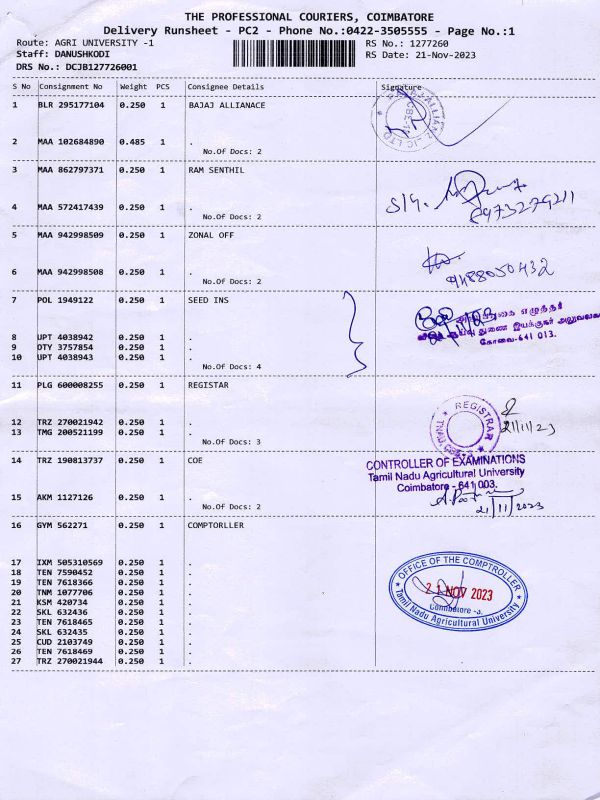 THE PROFESSIONAL COURIERS, COIMBATORE
Delivery Runsheet - PC2 - Phone No.:0422-3505555 - Page No.:1
Route: AGRI UNIVERSITY -1 RS No.: 1277260
Staff: DANUSHKODI RS Date: 21-Nov-2023
DRS No.: DCJB127726001
S No Consignment No Weight PCS Consignee Details Signature
1 BLR 295177104 0.250 1 BAJAJ ALLIANACE
2 MAA 102684890 0.485 1 .
No.Of Docs: 2
3 MAA 862797371 0.250 1 RAM SENTHIL
4 MAA 572417439 0.250 1 .
No.Of Docs: 2
8973279211
5 MAA 942998509 0.250 1 ZONAL OFF
6 MAA 942998508 0.250 1 .
No.Of Docs: 2
9488050432
7 POL 1949122 0.250 1 SEED INS
துணை இயக்குநர் அலுவலகம்
கோவை-641 013.
8 UPT 4038942 0.250 1 .
9 DTY 3757854 0.250 1 .
10 UPT 4038943 0.250 1 .
No.Of Docs: 4
11 PLG 600008255 0.250 1 REGISTAR
REGISTRAR
21/11/23
12 TRZ 270021942 0.250 1 .
13 TMG 200521199 0.250 1 .
No.Of Docs: 3
14 TRZ 190813737 0.250 1 COE
CONTROLLER OF EXAMINATIONS
Tamil Nadu Agricultural University
Coimbatore - 641 003.
15 AKM 1127126 0.250 1 .
No.Of Docs: 2
21/11/2023
16 GYM 562271 0.250 1 COMPTORLLER
OFFICE OF THE COMPTROLLER
21 NOV 2023
Coimbatore -3.
Tamil Nadu Agricultural University
17 IXM 505310569 0.250 1 .
18 TEN 7590452 0.250 1 .
19 TEN 7618366 0.250 1 .
20 TNM 1077706 0.250 1 .
21 KSM 420734 0.250 1 .
22 SKL 632436 0.250 1 .
23 TEN 7618465 0.250 1 .
24 SKL 632435 0.250 1 .
25 CUD 2103749 0.250 1 .
26 TEN 7618469 0.250 1 .
27 TRZ 270021944 0.250 1 .